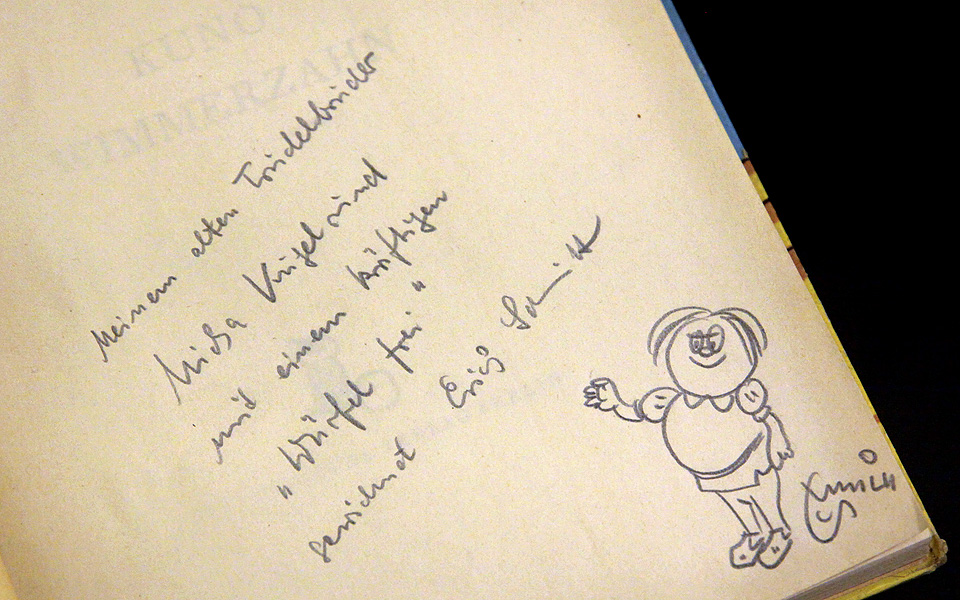 KUNO
WIMMERZAHN
Meinem alten Trödelbruder
Micha Kugelrund
mit einem kräftigen
"Würfel frei"
gewidmet Erich Schmitt